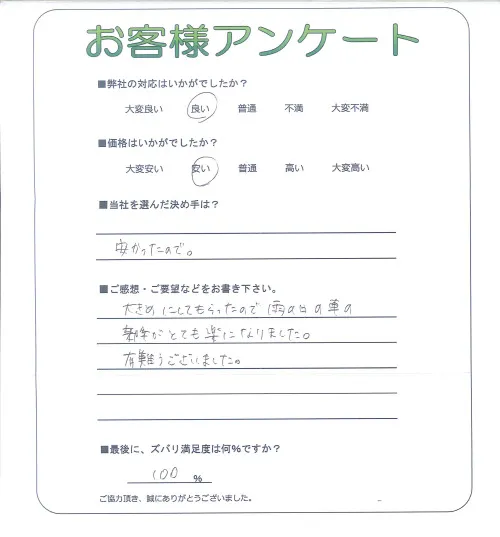 お客様アンケート
■弊社の対応はいかがでしたか？
大変良い 良い 普通 不満 大変不満
■価格はいかがでしたか？
大変安い 安い 普通 高い 大変高い
■当社を選んだ決め手は？
安かったので。
■ご感想・ご要望などをお書き下さい。
大きめにしてもらったので雨の日の車の
がとても楽になりました。
有難うございました。
■最後に、ズバリ満足度は何％ですか？
100 ％
ご協力頂き、誠にありがとうございました。